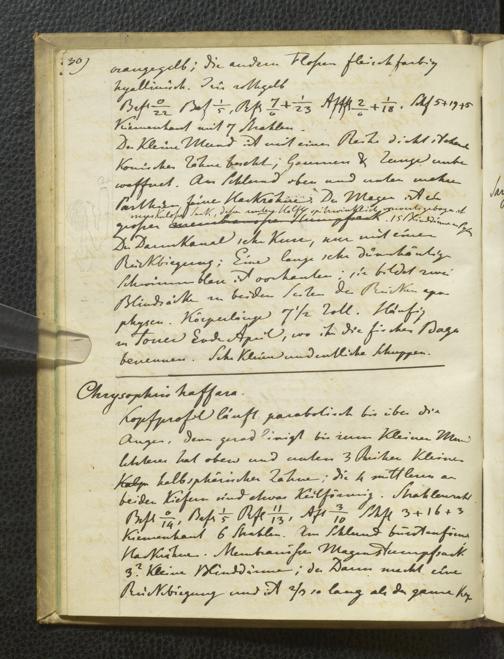 30)
orangegelb; die andern Flossen fleischfarbig
hyalinisch. Iris rothgelb
Bcfst 0/22 Bafst 1/5, Rfst 7/0 + 1/23 Afst 2/0 + 1/18. Schfst 5+19+5
Kiemenhaut mit 7 Strahlen.
Der kleine Mund ist mit einer Reihe dicht stehender
konischer Zähne besetzt; Gaumen & Zunge unbe
waffnet. Am Schlund oben und unten mehre
Parthien feine Hackzähne. Der Magen ist ein
muskulöser Sack, dessen
großer 15 Blinddärme
Der Darmkanal sehr kurz, nur mit einer
Rückbiegung; Eine lange sehr dünnhäutige
Schwimmblase ist vorhanden; sie bildet zwei
Blindsäcke zu beiden Seiten der Rücken apo
physen. Körperlänge 7 1/2 Zoll. Häufig
in Ende April, wo ihn die Fischer Baga
benennen. Sehr kleine undeutliche Schuppen.
Chrysophris haffara.
Kopfprofil läuft parabolisch bis über die
Augen, dann gradlinigt bis zum kleinen Mund
letzterer hat oben und unten 3 Reihen kleiner
halbsphärischer Zähne; die 4 mittleren an
beiden Kiefern sind etwas keilförmig. Strahlenzahl
Bcfst 0/14, Bafst 1/5 Rfst 11/13, Afst 3/10 Schfst 3+16+3
Kiemenhaut 6 Strahlen. Im Schlund bürstenförmige
Hackzähne. Membranöser Magen stumpfsack
3? kleine Blinddärme; der Darm macht eine
Rückbiegung und ist 2/3 so lang als der ganze Kör